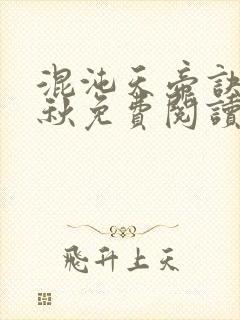 混沌天帝訣
秋免費閱讀
飛升上天